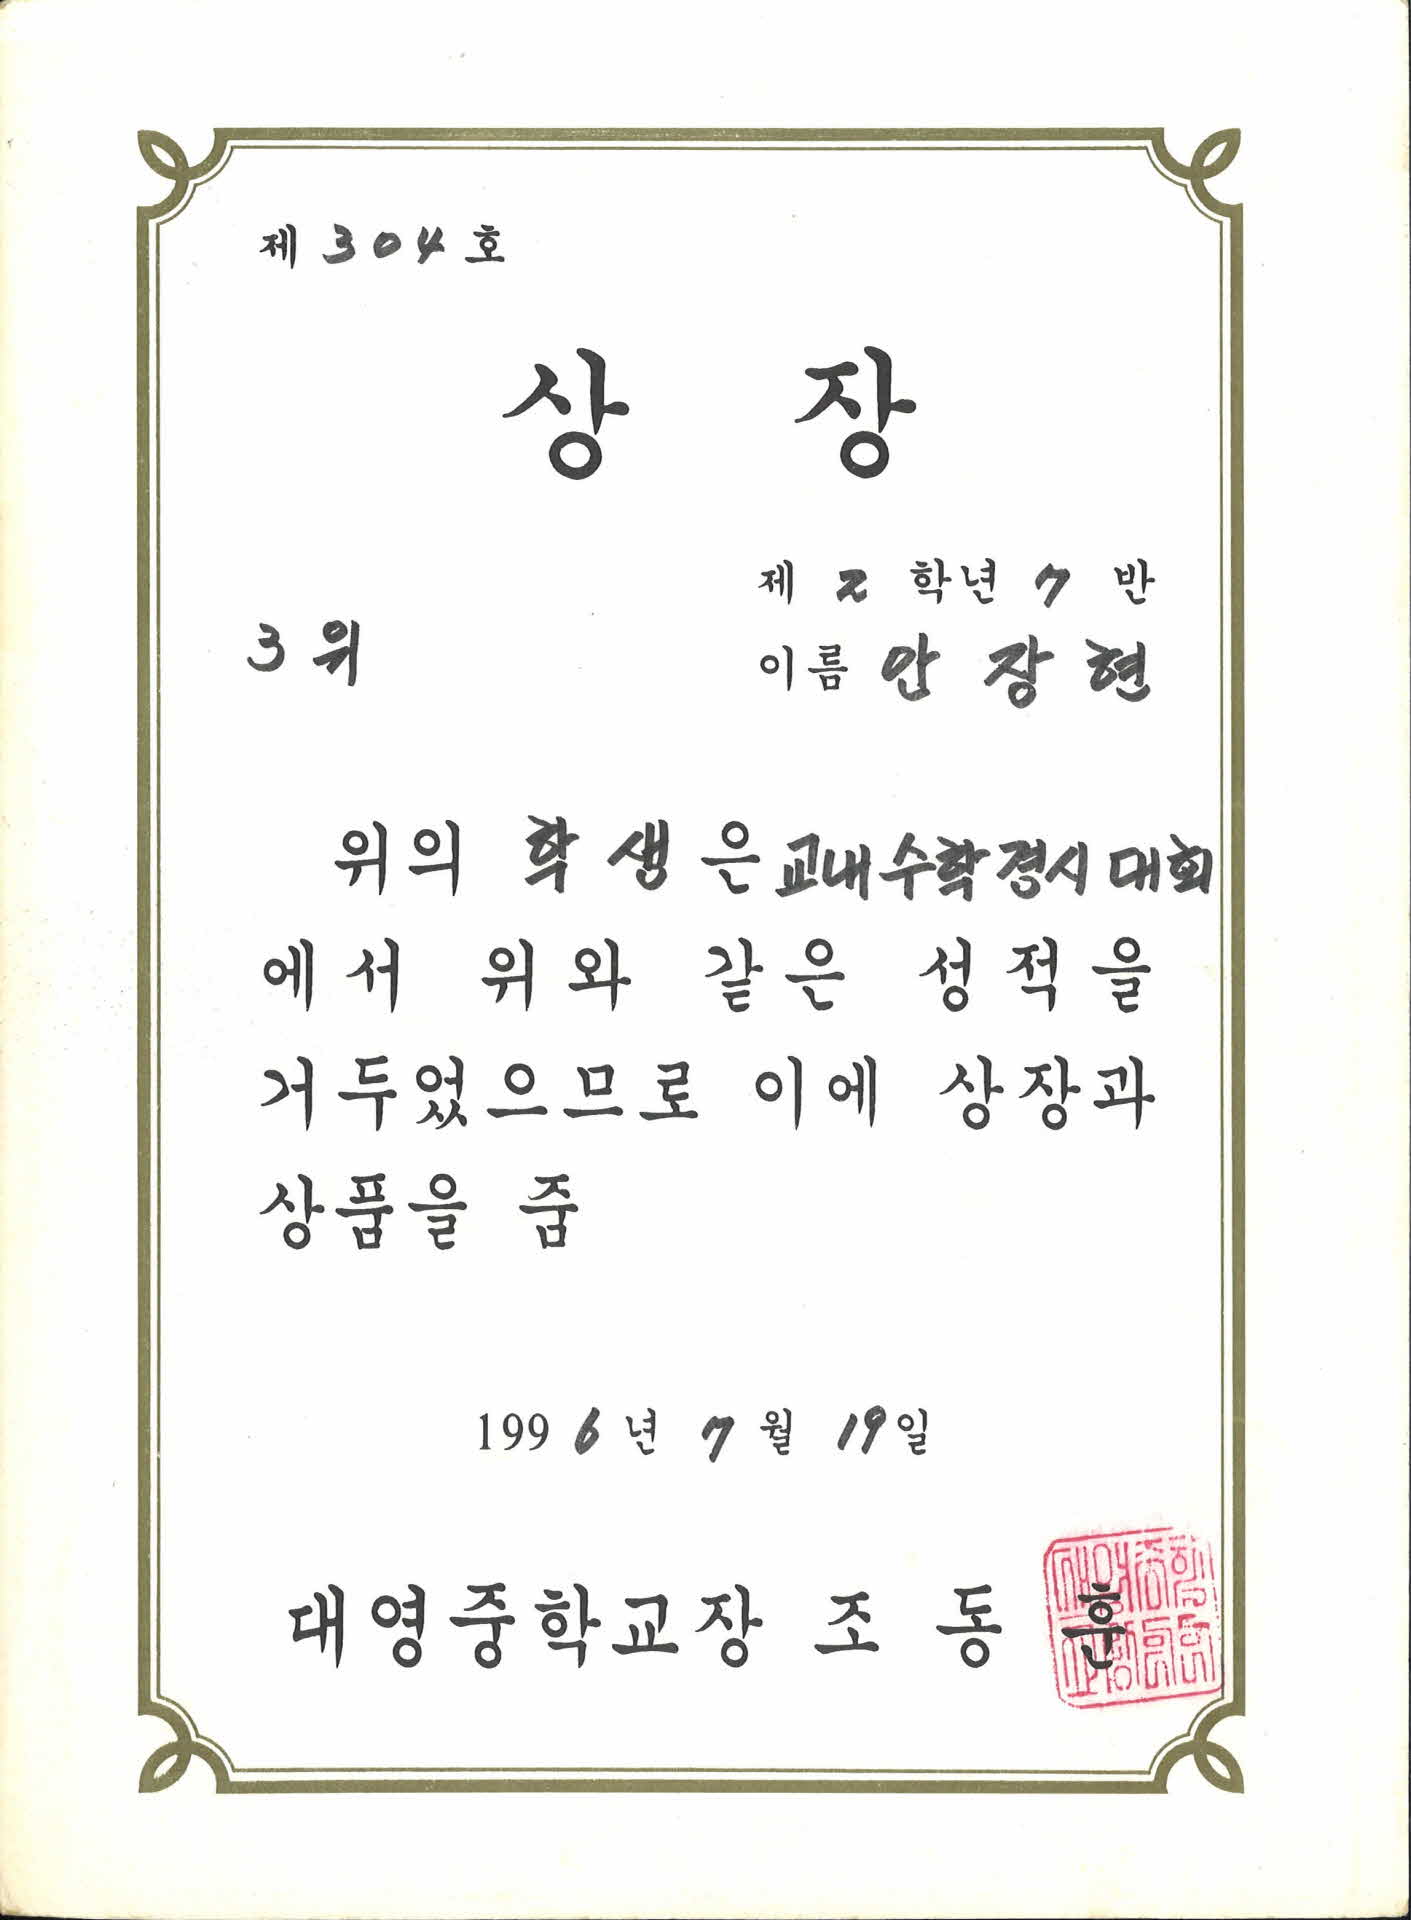 제 304 호
상 장
제 2 학년 7 반
3위
이름 안 장 현
위의 학생은 교내수학경시대회
에서 위와 같은 성적을
거두었으므로 이에 상장과
상품을 줌
1996년 7월 19일
대영중학교장 조동훈